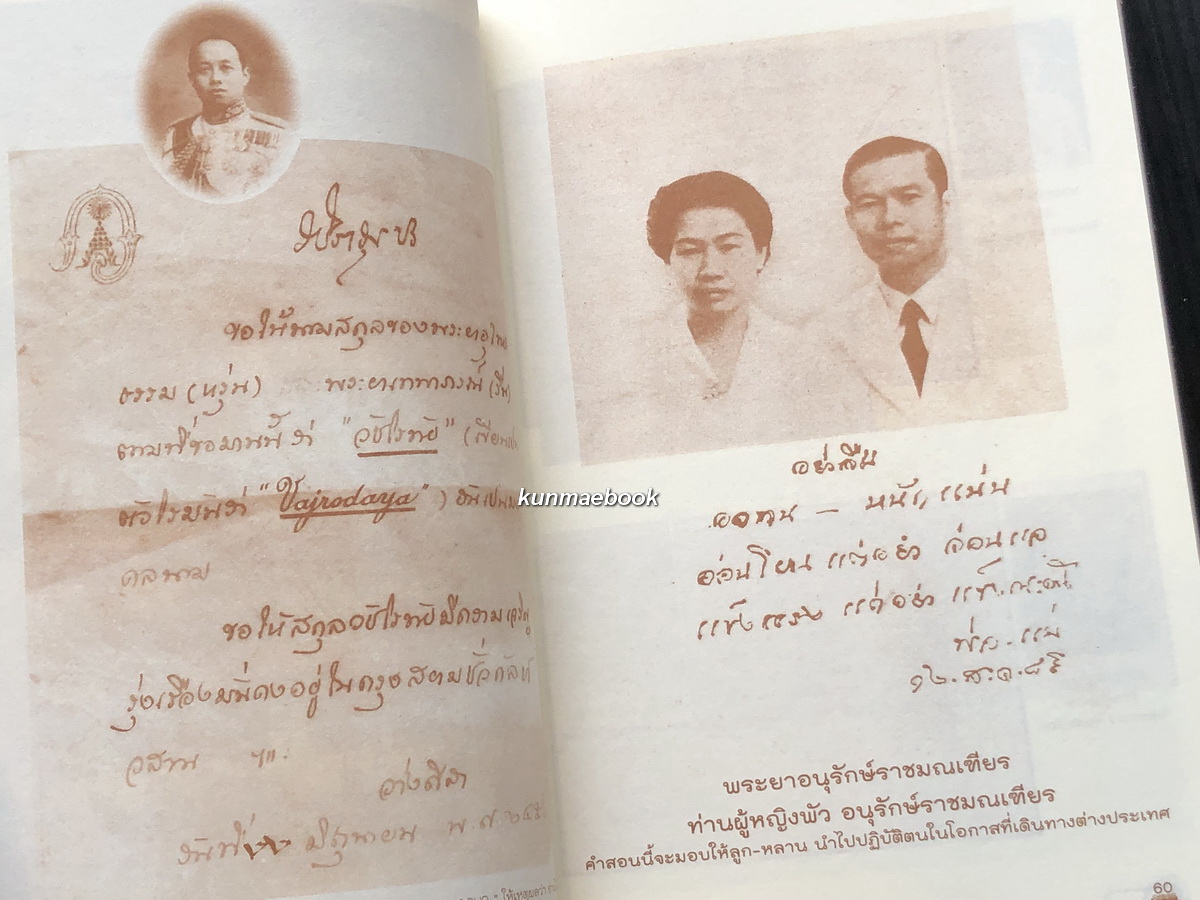 ขอให้นามสกุลของพระยาอุไทย
ธรรม (หรุ่น) พระยาเทพาภรณ์ (รื่น)
ตามที่ขอมานั้นว่า "วัชโรทัย" (เขียนเปน
ตัวโรมันว่า "Vajrodaya") อันเปนมง
คลนาม
ขอให้สกุลวัชโรทัยมีความเจริญ
รุ่งเรืองมั่นคงอยู่ในกรุงสยามชั่วกัลปา
วสาน ฯ
อ่างศิลา
วันที่ มิถุนายน พ.ศ.
kunmaebook
อย่าลืม
อดทน – หนักแน่น
อ่อนโยน แต่อย่า อ่อนแอ
แข็งแรง แต่อย่า แข็งกระด้าง
พ่อ-แม่
พระยาอนุรักษ์ราชมณเฑียร
ท่านผู้หญิงพัว อนุรักษ์ราชมณเฑียร
คำสอนนี้จะมอบให้ลูก-หลาน นำไปปฏิบัติตนในโอกาสที่เดินทางต่างประเทศ
60